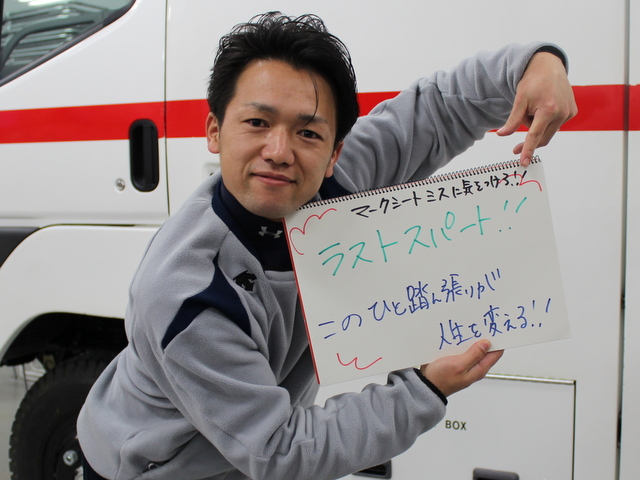 マークシートミスに気をつけろ!!
ラストスパート!!
このひと踏ん張りが
人生を変える!!
BOX